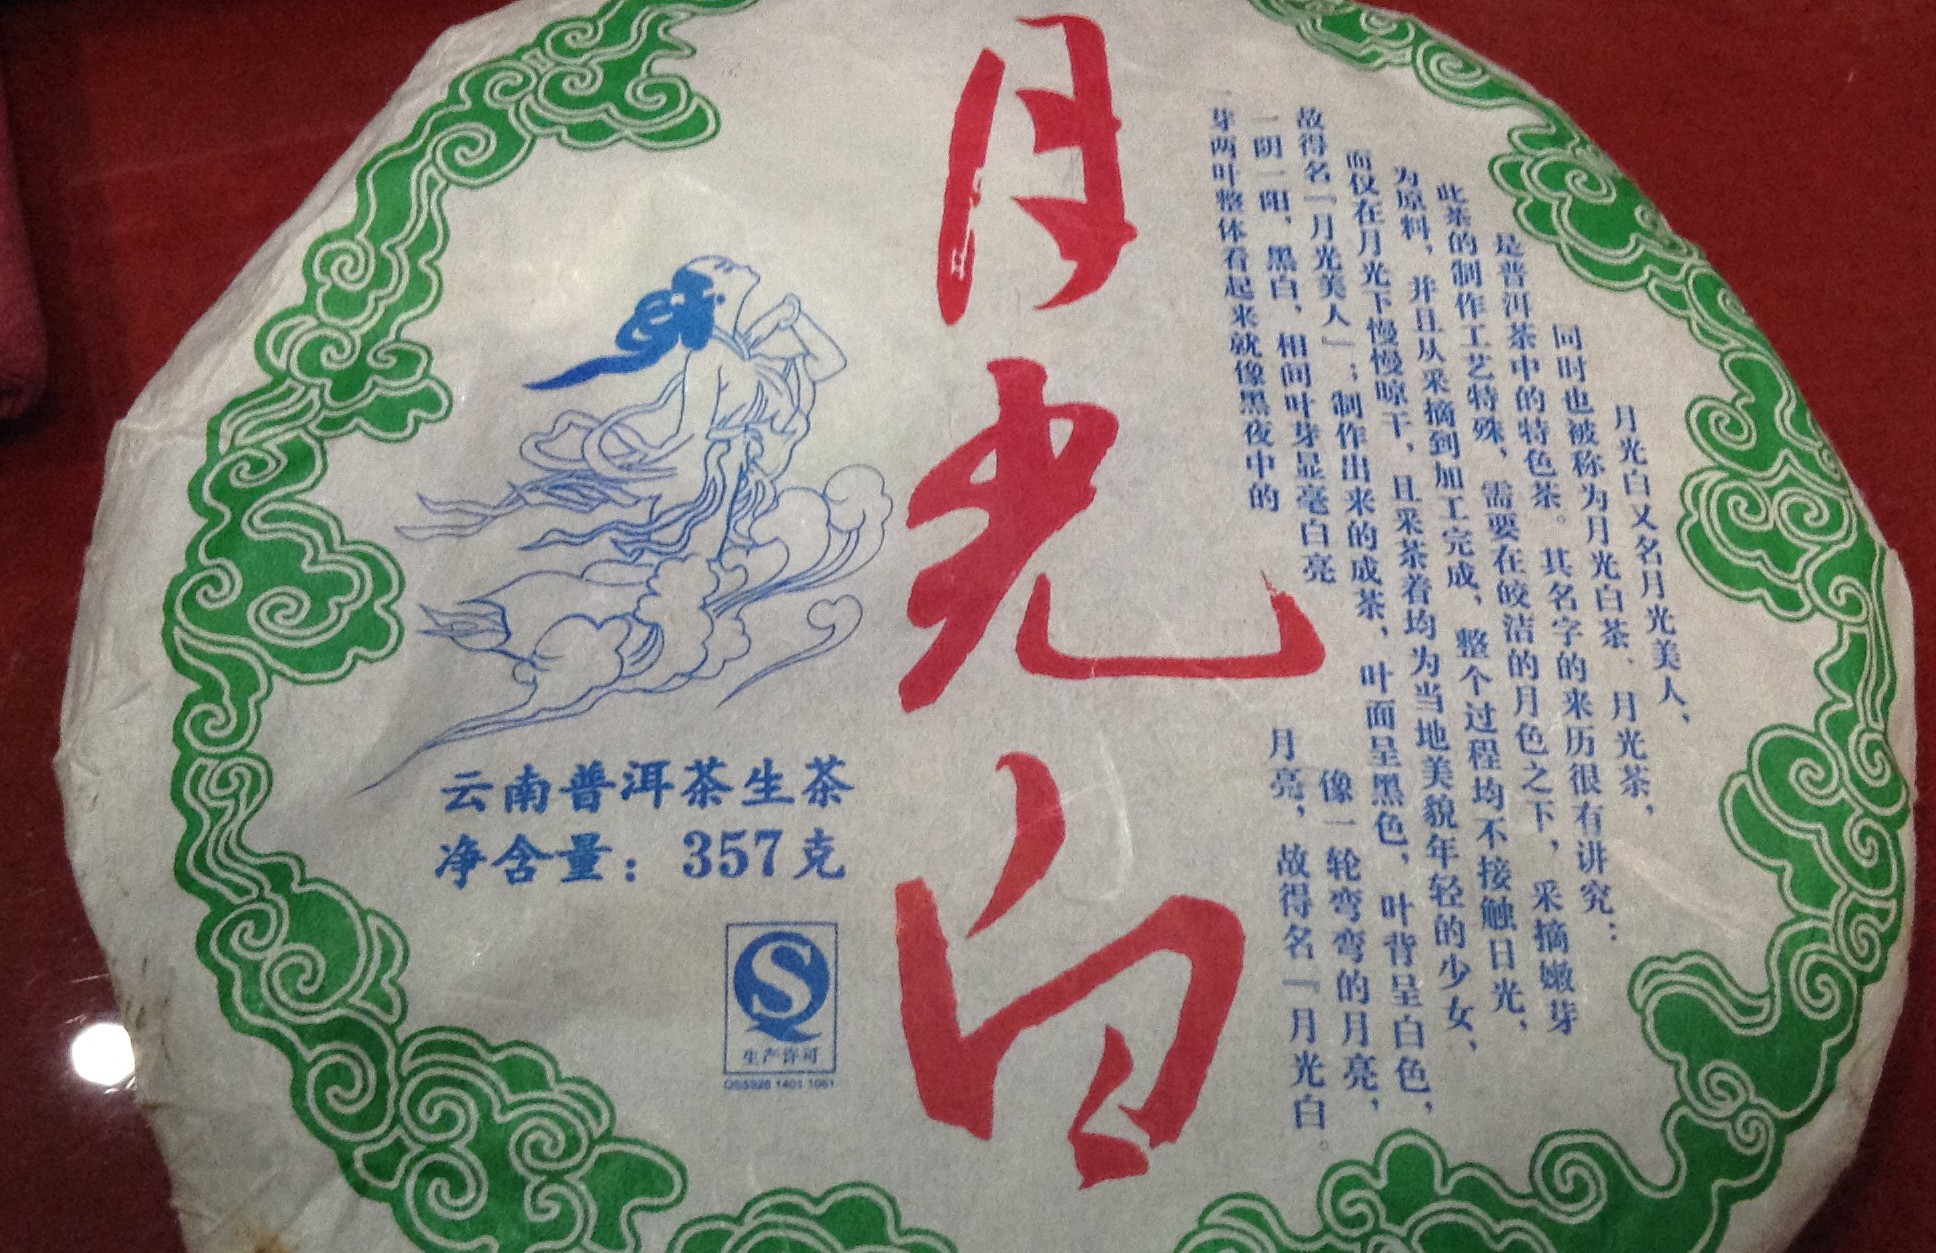 月光白
月光白又名月光美人、
同时也被称为月光白茶、月光茶，
是普洱茶中的特色茶。其名字的来历很有讲究：
此茶的制作工艺特殊，需要在皎洁的月色之下，采摘嫩芽
为原料，并且从采摘到加工完成，整个过程均不接触日光，
而仅在月光下慢慢晾干，且采茶着均为当地美貌年轻的少女、
故得名『月光美人』；制作出来的成茶，叶面呈黑色，叶背呈白色，
一阴一阳，黑白，相间叶芽显毫白亮 像一轮弯弯的月亮，
芽两叶整体看起来就像黑夜中的 月亮，故得名『月光白。
云南普洱茶生茶
净含量：357克
生产许可
QS5326 1401 1061